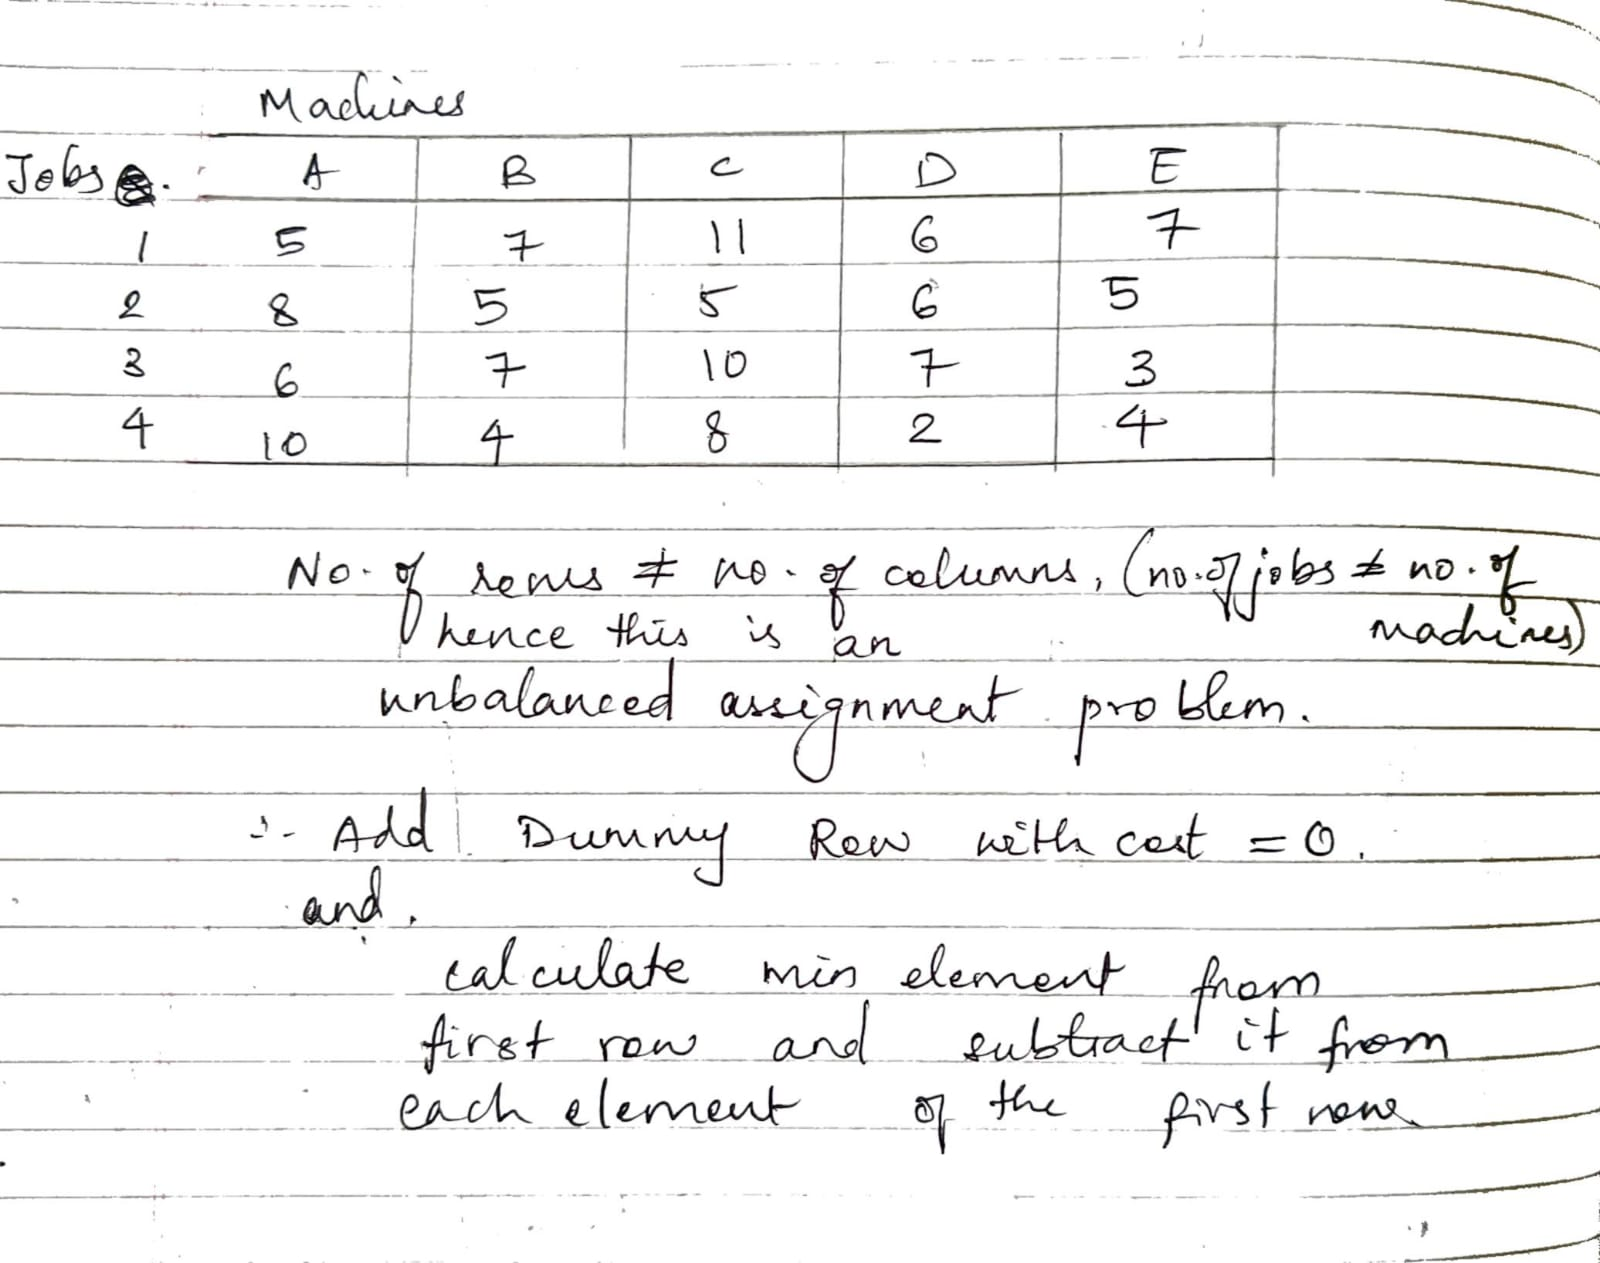 Machines
Jobs A B C D E
1 5 7 11 6 7
2 8 5 5 6 5
3 6 7 10 7 3
4 10 4 8 2 4
No. of rows ≠ no. of columns, (no. of jobs ≠ no. of
hence this is an machines)
unbalanced assignment problem.
∴ Add Dummy Row with cost = 0.
and.
calculate min element from
first row and subtract it from
each element of the first row